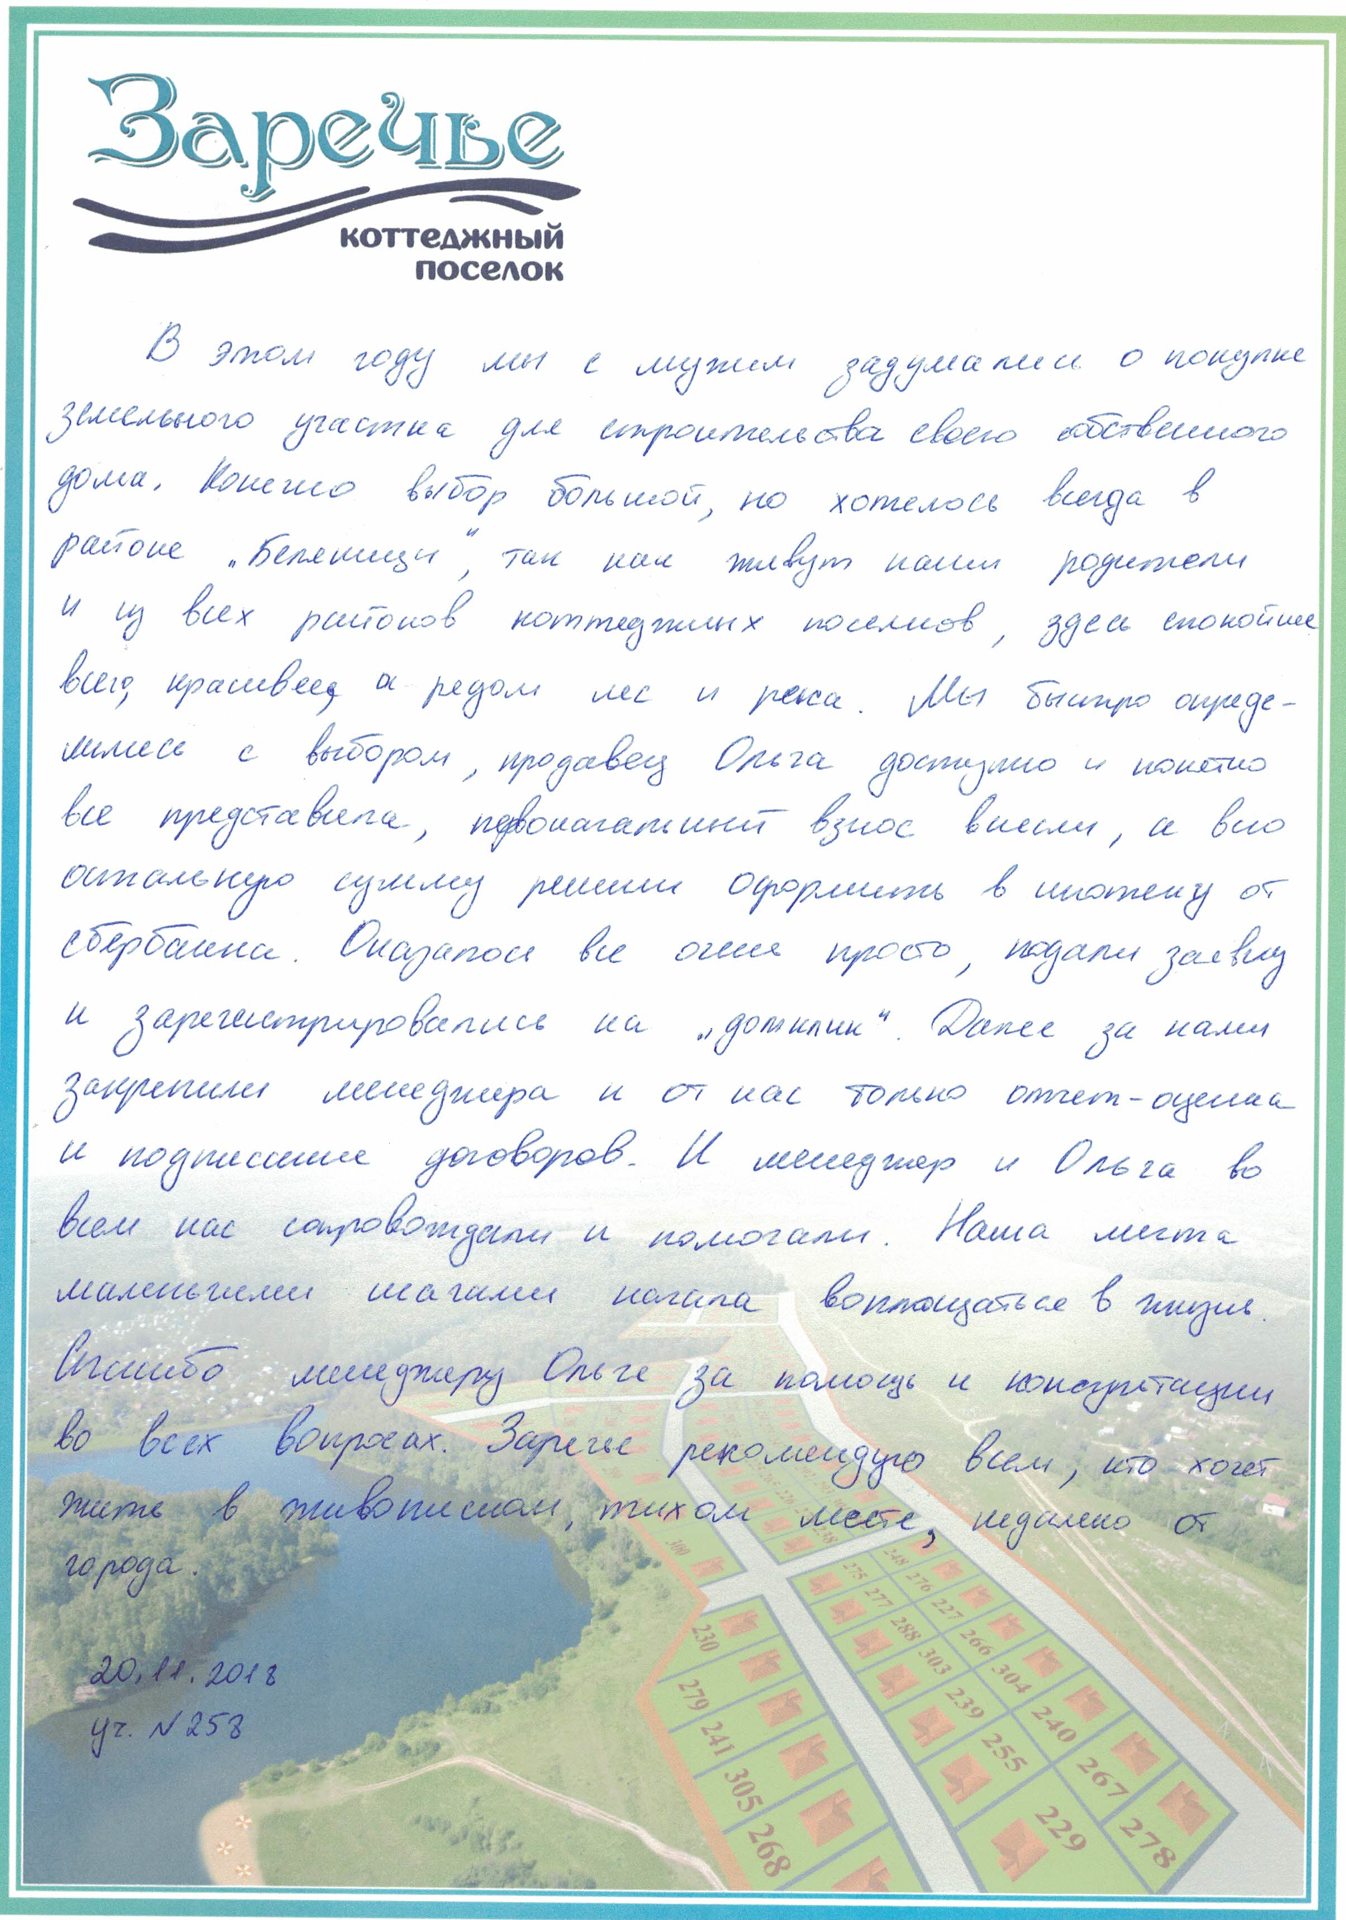 Заречье
коттеджный
поселок
В этом году мы с мужем задумались о покупке
земельного участка для строительства своего собственного
дома. Конечно выбор большой, но хотелось всегда в
районе „Беляницы“, так как живут наши родители
и из всех районов коттеджных поселков, здесь спокойнее
всего, красивее, а рядом лес и река. Мы быстро опреде-
лились с выбором, продавец Ольга доступно и понятно
все представила, первоначальный взнос внесли, а всю
остальную сумму решили оформить в ипотеку от
сбербанка. Оказалось все очень просто, подали заявку
и зарегистрировались на „домклик“. Далее за нами
закрепили менеджера и от нас только отчет-оценка
и подписание договоров. И менеджер и Ольга во
всем нас сопровождали и помогали. Наша мечта
маленькими шагами начала воплощаться в жизнь.
Спасибо менеджеру Ольге за помощь и консультации
во всех вопросах. Заречье рекомендую всем, кто хочет
жить в живописном, тихом месте, недалеко от
города.
300 248
275 276
277 227
230 288 266
303 304
279 239 240
241 255 267
305 229 278
268
20.11.2018
уч. N 258